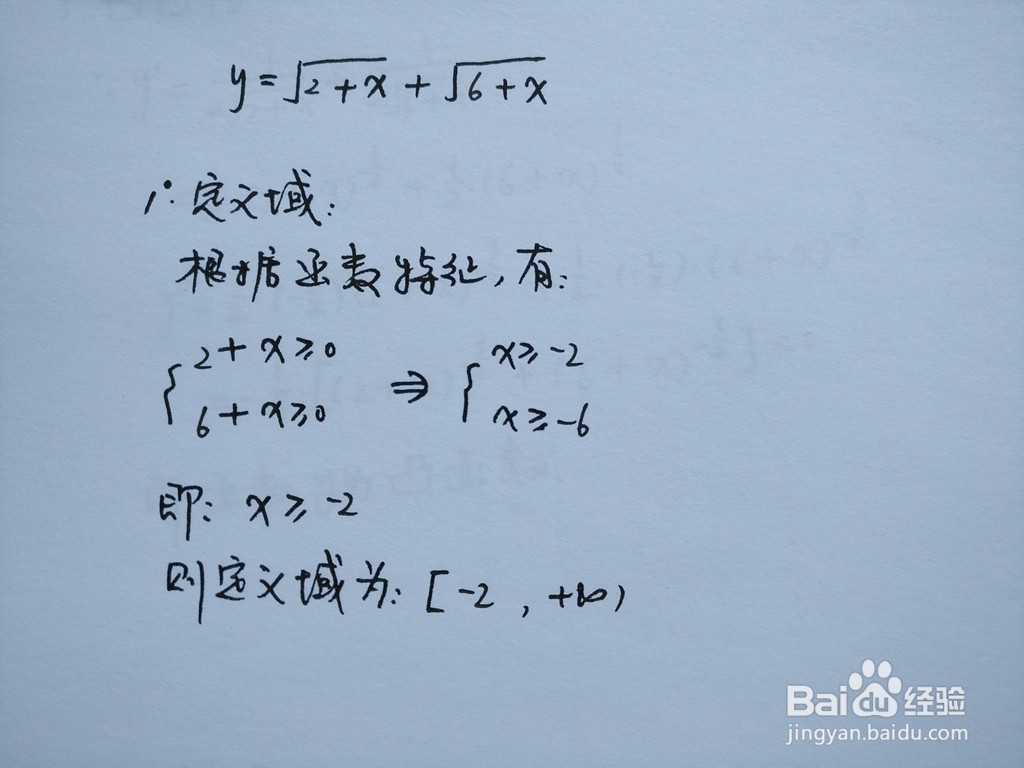 y=√2+x + √6+x
1°定义域:
根据函数特征,有:
{2+x≥0 ⇒ {x≥-2
6+x≥0 x≥-6
即: x≥-2
则定义域为: [-2, +∞)
Bai du 经验
jingyan.baidu.com